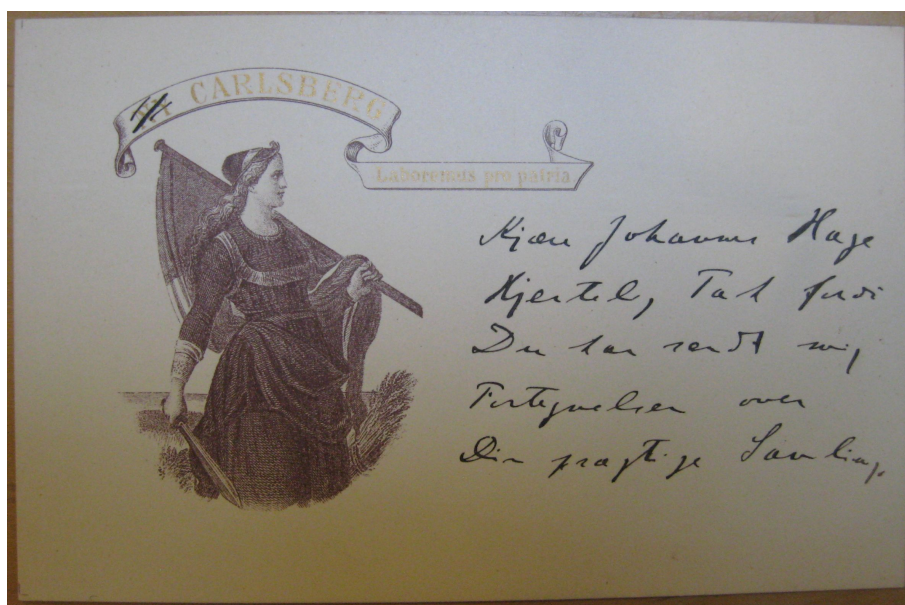 CARLSBERG
Laboremus pro patria
Kjære Johannes Hage
Hjertelig Tak fordi
Du har sendt mig
Fortegnelsen over
Din prægtige Samling,